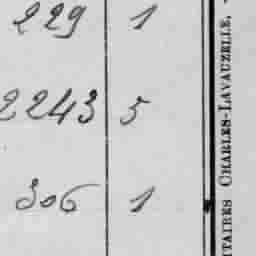 229 1
2243 5
306 1
ITAIRES CHARLES-LAVAUZELLE,